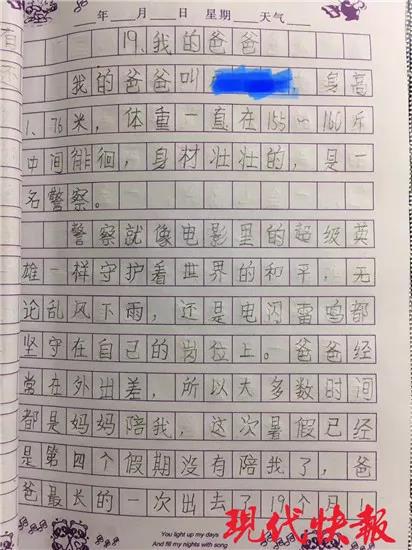 年 月 日 星期 天气
19、我的爸爸
我的爸爸叫 身高
1、76米,体重一直在155~160斤
中间徘徊,身材壮壮的,是一
名警察。
警察就像电影里的超级英
雄一样守护着世界的和平,无
论乱风下雨,还是电闪雷鸣都
坚守在自己的岗位上。爸爸经
常在外出差,所以大多数时间
都是妈妈陪我,这次暑假已经
是第四个假期没有陪我了,爸
爸最长的一次出去了19个月!
现代快报
You light up my days
And fill my nights with song